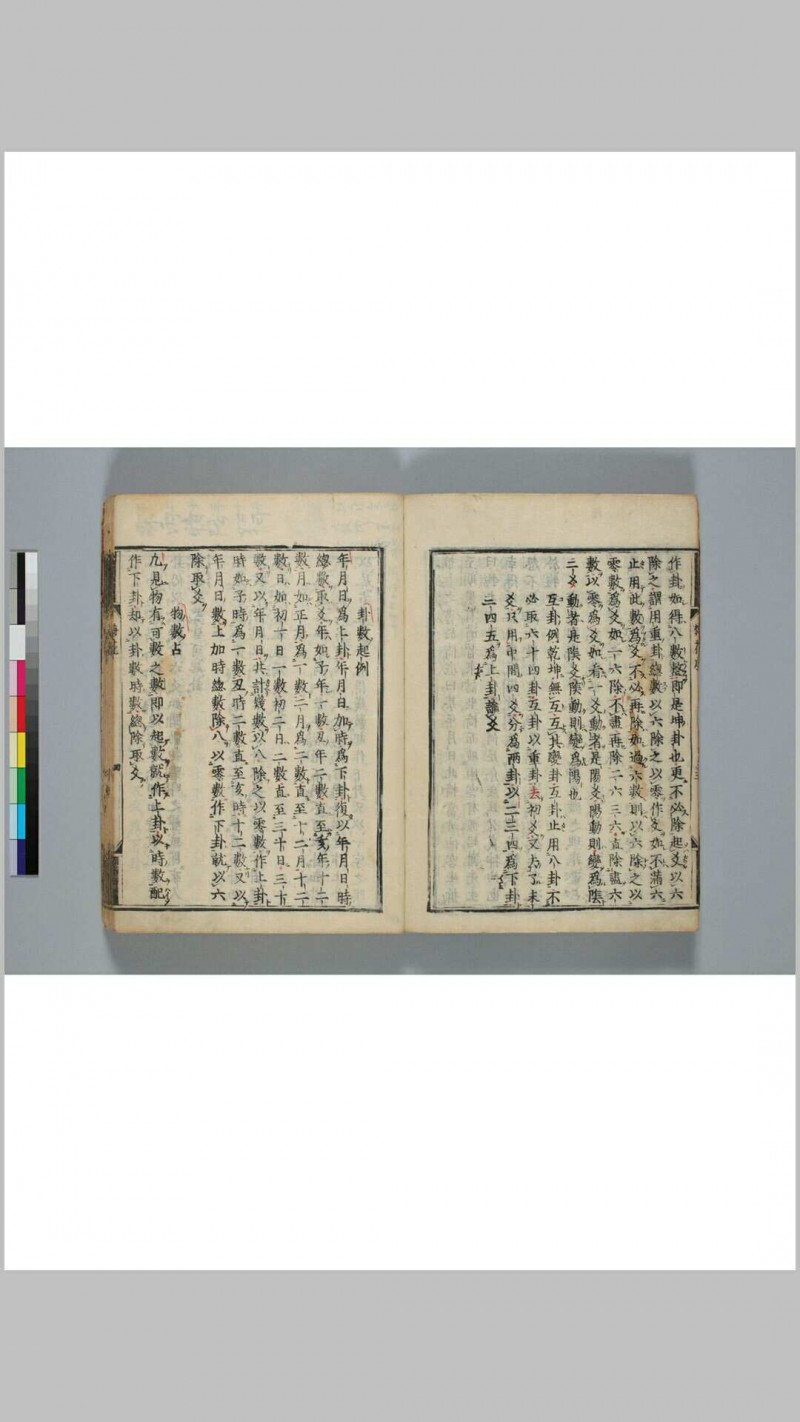 作卦如得八數整即是坤卦也更不必除起爻以六
除之謂用重卦總數以六除之以零作爻如不滿六
止用此數為爻不必再除如過六數則以六除之以
零數為爻如一六除不盡再除二六三六直除盡六
數以零為爻如看一爻動者是陽爻陽動則變為陰
二爻動者是陰爻陰動則變為陽也
互卦例乾坤無互互其變卦互卦止用八卦不
必取六十四卦互卦以重卦去初爻及
爻只用中間四爻分為兩卦以二三四為下卦
三四五為上卦
卦數起例
年月日為上卦年月日加時為下卦復以年月日時
總數取爻年如子年一數丑年二數直至亥年十二
數月如正月為一數二月為二數直至十二月十二
數日如初一日一數初二日二數直至三十日三十
數又以年月日共計幾數以八除之以零數作上卦
時如子時為一數丑時二數直至亥時十二數又以
年月日數上加時總數除八以零數作下卦就以六
除取爻
物數占
凡見物有可數之數即以起數就作上卦以時數配
作下卦却以卦數時數總除取爻